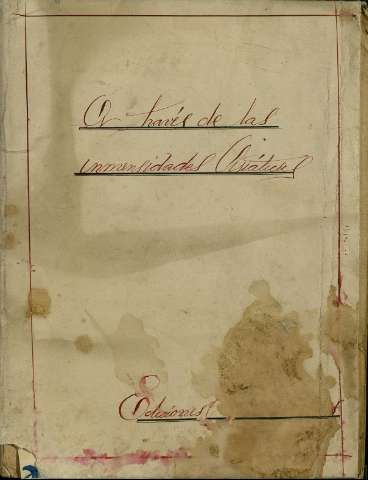 A través de las
inmensidades Asiáticas
Ediciones